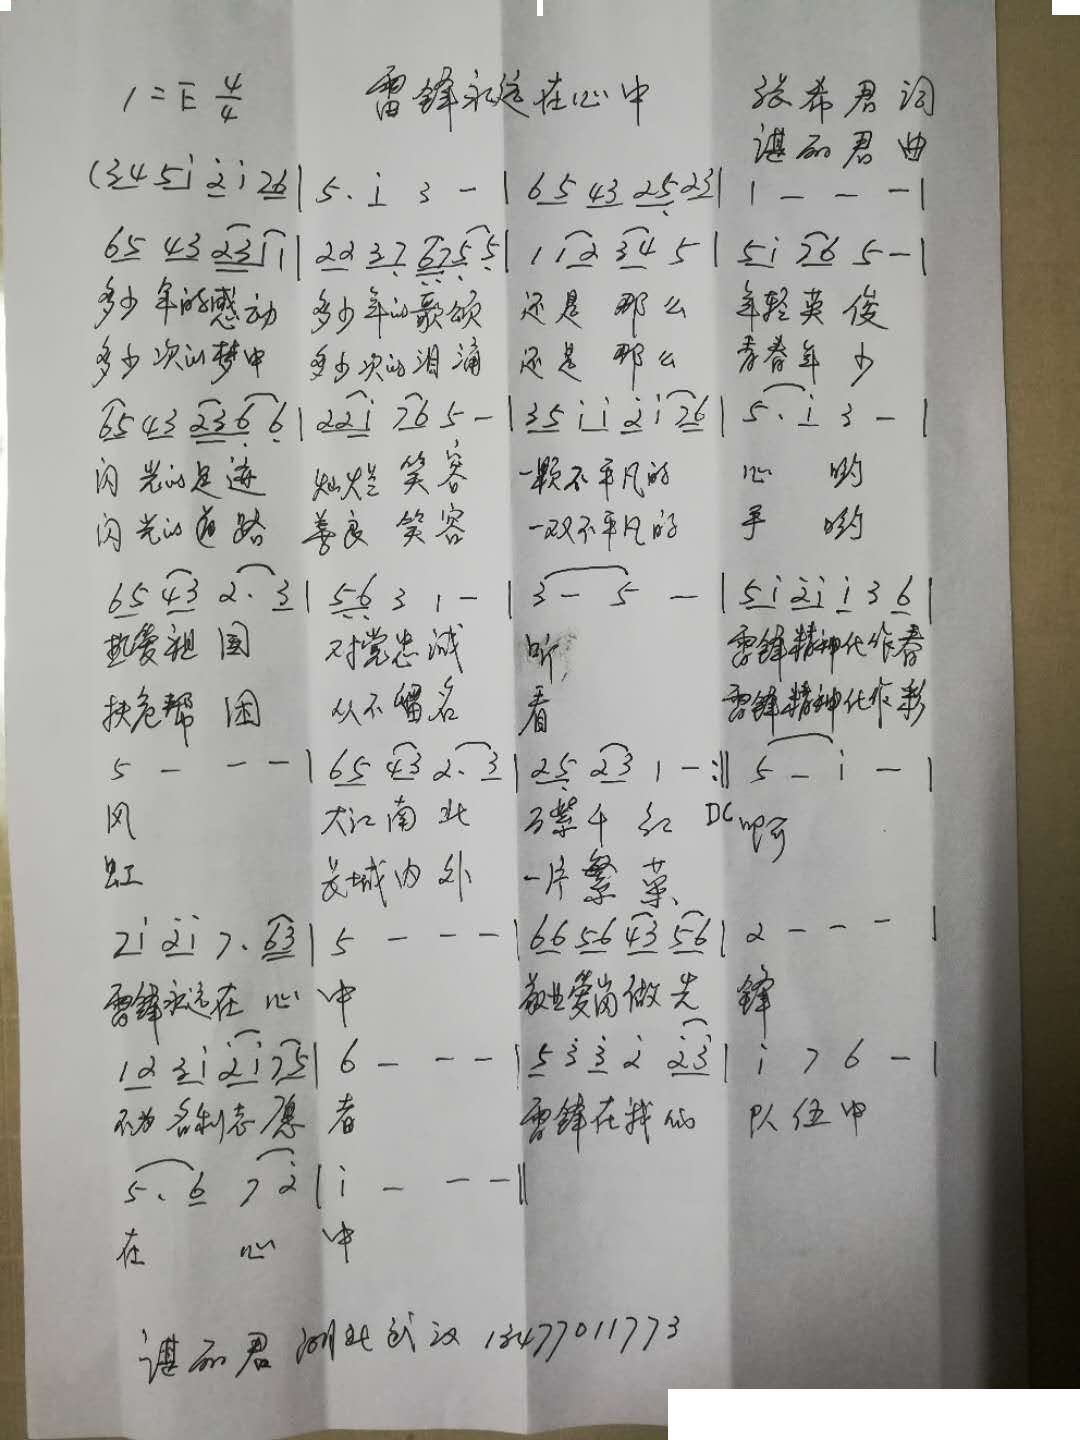 1=E 4/4 雷锋永远在心中 张希君词
谌丽君曲
(34 5i 2i 26 | 5. i 3 - | 65 43 25 23 | 1 - - - |
65 43 23 1 1 | 22 37 67 5 5 | 1 1 2 34 5 | 5i 76 5 - |
多少年的感动 多少年的歌颂 还是那么 年轻英俊
多少次的梦中 多少次的泪涌 还是那么 青春年少
65 43 23 6 6 | 2 2 i 76 5 - | 35 i i 2 i 76 | 5. i 3 - |
闪光的足迹 灿烂笑容 一颗不平凡的 心哟
闪光的道路 善良笑容 一双不平凡的 手哟
65 43 2. 3 | 56 3 1 - | 3 - 5 - | 5i 2i i 3 6 |
热爱祖国 对党忠诚 听 雷锋精神化作春
扶危帮困 从不留名 看 雷锋精神化作彩
5 - - - | 65 43 2. 3 | 25 23 1 - :|| 5 - i - |
风 大江南北 万紫千红 DC 啊
虹 长城内外 一片繁荣
7i 2i 7. 63 | 5 - - - | 66 56 43 56 | 2 - - - |
雷锋永远在心中 敬业爱岗做先锋
12 3i 2i 75 | 6 - - - | 5 3 3 2 23 | i 7 6 - |
不为名利志愿者 雷锋在我们 队伍中
5. 6 7 2 | i - - - ||
在心中
谌丽君 湖北武汉 13477011773